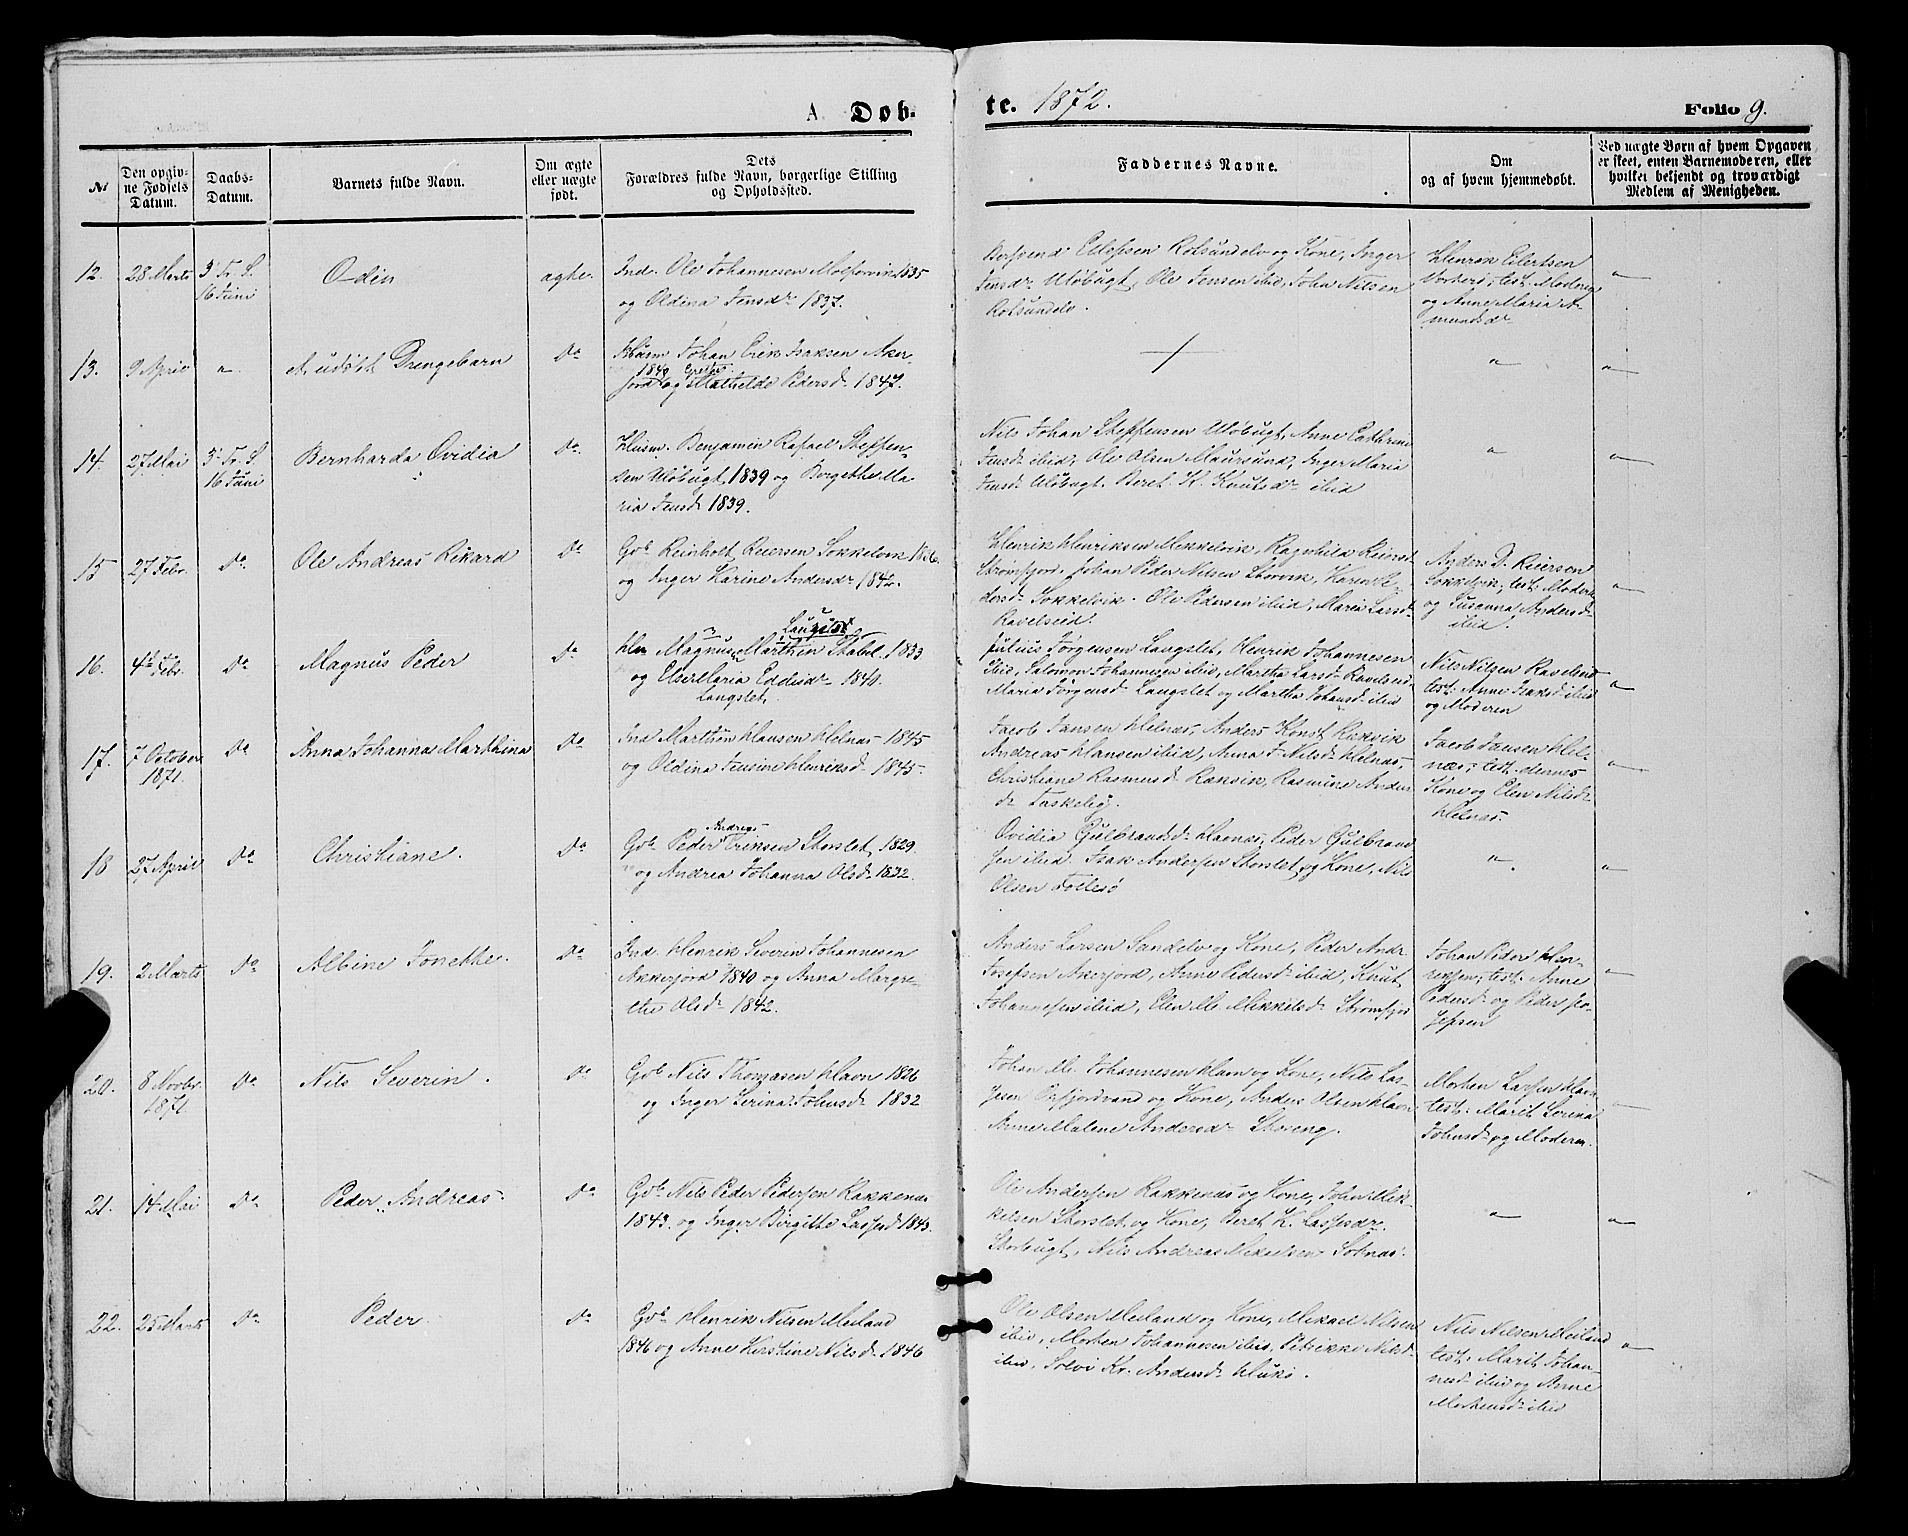 A. Døb-
te. 1872.
Folio 9.
№
Den opgiv-
ne Fødsels
Datum.
Daabs-
Datum.
Barnets fulde Navn.
Om ægte
eller uægte
født.
Dets
Forældres fulde Navn, borgerlige Stilling
og Opholdssted.
Faddernes Navne.
Om
og af hvem hjemmedøbt.
Ved uægte Børn af hvem Opgaven
er skeet, enten Barnemoderen, eller
hvilket bekjendt og troværdigt
Medlem af Menigheden.
12. 28 Marts
3' Tr. S.
16 Juni
Odin
ægte.
Ind. Ole Johannesen 1835
og Oldina Jensdr 1837.
Eilefsen Rotsundelv og Kone, Inger
Jensdr Uløbugt, Ole Jensen ibid, John Nilsen
Rotsundelv.
Henrik Eilertsen
test. Moderen
og Anne Maria A-
mundsdr
"
13. 9 April
"
et udøbt Drengebarn
Do
Husm Johan Erik Isaksen Aker-
fjord 1840 og Grethe Mathilde Pedersd. 1847.
"
"
14. 27 Mai
3' Tr. S.
16 Juni
Bernharda Ovidia
Do
Husm. Benjamin Rafael Steffen-
sen Uløbugt 1839 og Borgethe Ma-
ria Jensd 1839.
Nils Johan Steffensen Uløbugt, Anne Cathrine
Jensd ibid, Ole Olsen Maursund, Inger Maria
Jensd Uløbugt. Beret K. Knutsdr ibid
"
"
15 27 Febr.
Do
Ole Andreas Rikard
Do
Gb. Reinholt Reiersen Sokkelvik 1836.
og Inger Karine Andersdr 1842.
Henrik Henriksen Mikkelvik, Ragnhild Reiersd
Strømfjord. Johan Peder Nilsen Storvik, Karen Pe-
dersd Sokkelvik. Ole Pedersen ibid, Maria Larsd
Ravelseid.
Anders D. Reiersen
Sokkelvik, test. Moderen
og Susanna Andersd
ibid.
"
16. 4de Febr.
Do
Magnus Peder
Do
Magnus Marthin 1833
og Else Maria 1840.
Langslet.
Julius Jørgensen Langslet, Henrik Johannesen
ibid, Salomon Johannesen ibid, Martha Larsd Ravelseid
Maria Jørgensd Langslet og Martha Johansd ibid
Nils Nilsen Ravelseid
test. Anne Isaksd ibid
og Moderen
"
17. 7 October
1871.
Do
Anna Johanna Marthina
Do
Ind Marthin Hansen Helnæs 1845
og Oldina Jensine Henriksd. 1845.
Jacob Jansen Helnæs, Anders Konst. Ravik
Andreas Hansen ibid, Anna J. Nilsd Helnæs,
Christiane Rasmusd Rakvik, Rasmine Anders
dr
Jacob Jansen Hel-
næs; test. dennes
Kone og Elen Nilsdr
Helnæs.
"
18 27 April
Do
Christiane.
Do
Gb. Peder Andreas Eriksen Storslet, 1829.
og Andrea Johanna Olsd 1832.
Ovidia Gulbrandsdr Havnæs, Peder Gulbrand
sen ibid. Isak Andersen Storslet og Kone, Nils
Olsen Follesø
"
"
19. 2 Marts
Do
Albine Jonette.
Do
Ind. Henrik Severin Johannesen
Akkerfjord 1840 og Anna Margre-
the Olsd 1842.
Anders Larsen Sandelv og Kone, Peder Andr.
Josefsen Akerfjord, Anne Pedersd ibid, Knut
Johannesen ibid, Elen M. Mikkelsd Strømfjor
Johan Peder Hen-
riksen; test. Anne
Pedersd og Peder Jo-
sefsen
"
20. 8 Novbr.
1871
Do
Nils Severin.
Do
Gb Nils Thomasen Havn 1826
og Inger Serina Johnsd 1832
Johan M. Johannesen Havn og Kone, Nils Las-
sesen Oxfjordvand og Kone, Anders Olsen Havn
Anne Malene Andersdr Storeng.
Morten Larsen Havn
test. Marit Serina
Johnsd og Moderen.
"
21. 14 Mai
Do
Peder Andreas.
Do
Gb. Nils Peder Pedersen Rakkenæs
1843. og Inger Birgitte Lassesd 1843.
Ole Andersen Rakkenæs og Kone, John Mik-
kelsen Storslet og Kone, Beret K. Lassesdr.
Storbugt, Nils Andreas Mikkelsen Solnæs.
"
"
22. 25 Marts
Do
Peder.
Do
Gb. Henrik Nilsen Meiland
1846 og Anne Kirstine Nilsd 1846
Ole Olsen Meiland og Kone, Mikael Nilsen
ibid, Morten Johannesen ibid, Petrikke Nilsd
ibid, Solvi Kr. Andersd Hukø.
Nils Nilsen Meiland
test. Marit Johan-
nesd ibid og Anne
Mortensd ibid
"